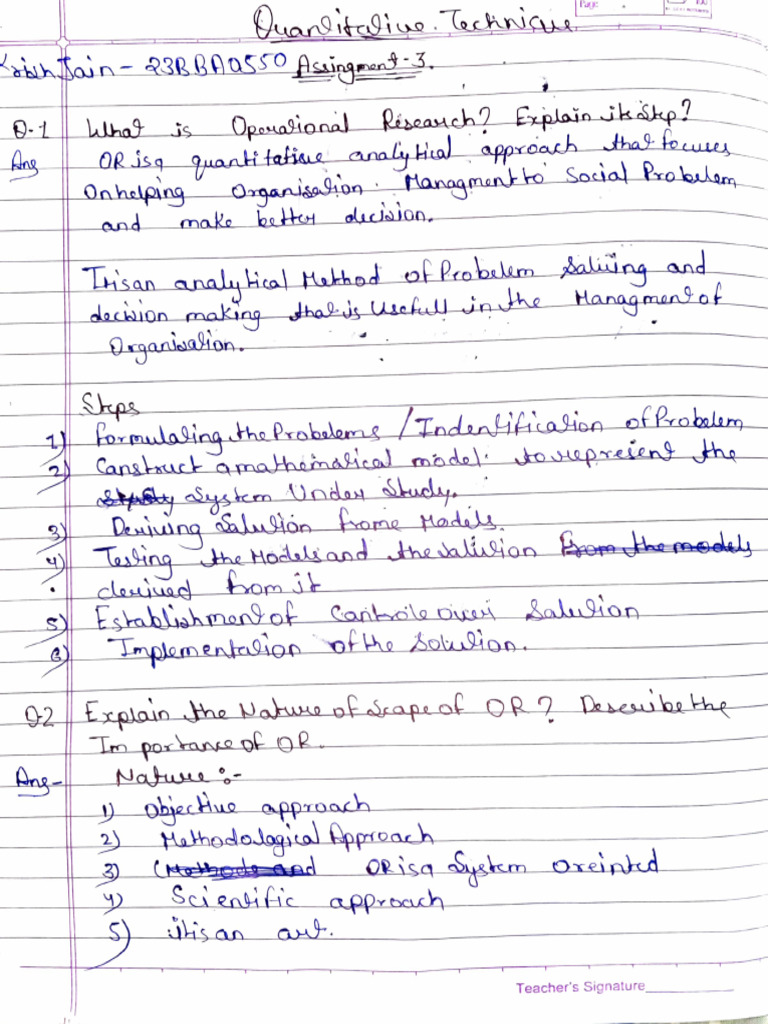 Page:
Quantitative Technique
Jain - 23BBA0550 Assingment-3.
Q-1 What is Operational Research? Explain its Step?
Ans OR is a quantitative analytical approach that focuses
On helping Organisation. Managment to Social Probelem
and make better decision.
It is an analytical Method of Probelem Salving and
decision making that is Usefull in the Managment of
Organisation.
Steps
1) Formulating the Probelems / Indentification of Probelem
2) Canstruct a mathematical model. to represient the
System Under Study.
3) Deriving Salution frome Models.
4) Testing the Models and the salution from the models
derived from it
5) Establishment of Cantrole over Salution
6) Implementation of the Solution.
Q-2 Explain the Nature of Scape of OR? Describe the
Im portance of OR.
Ans- Nature :-
1) Objective approach
2) Methodological Approach
3) (Methods and OR is a System oreinted
4) Scientific approach
5) it is an art.
Teacher's Signature